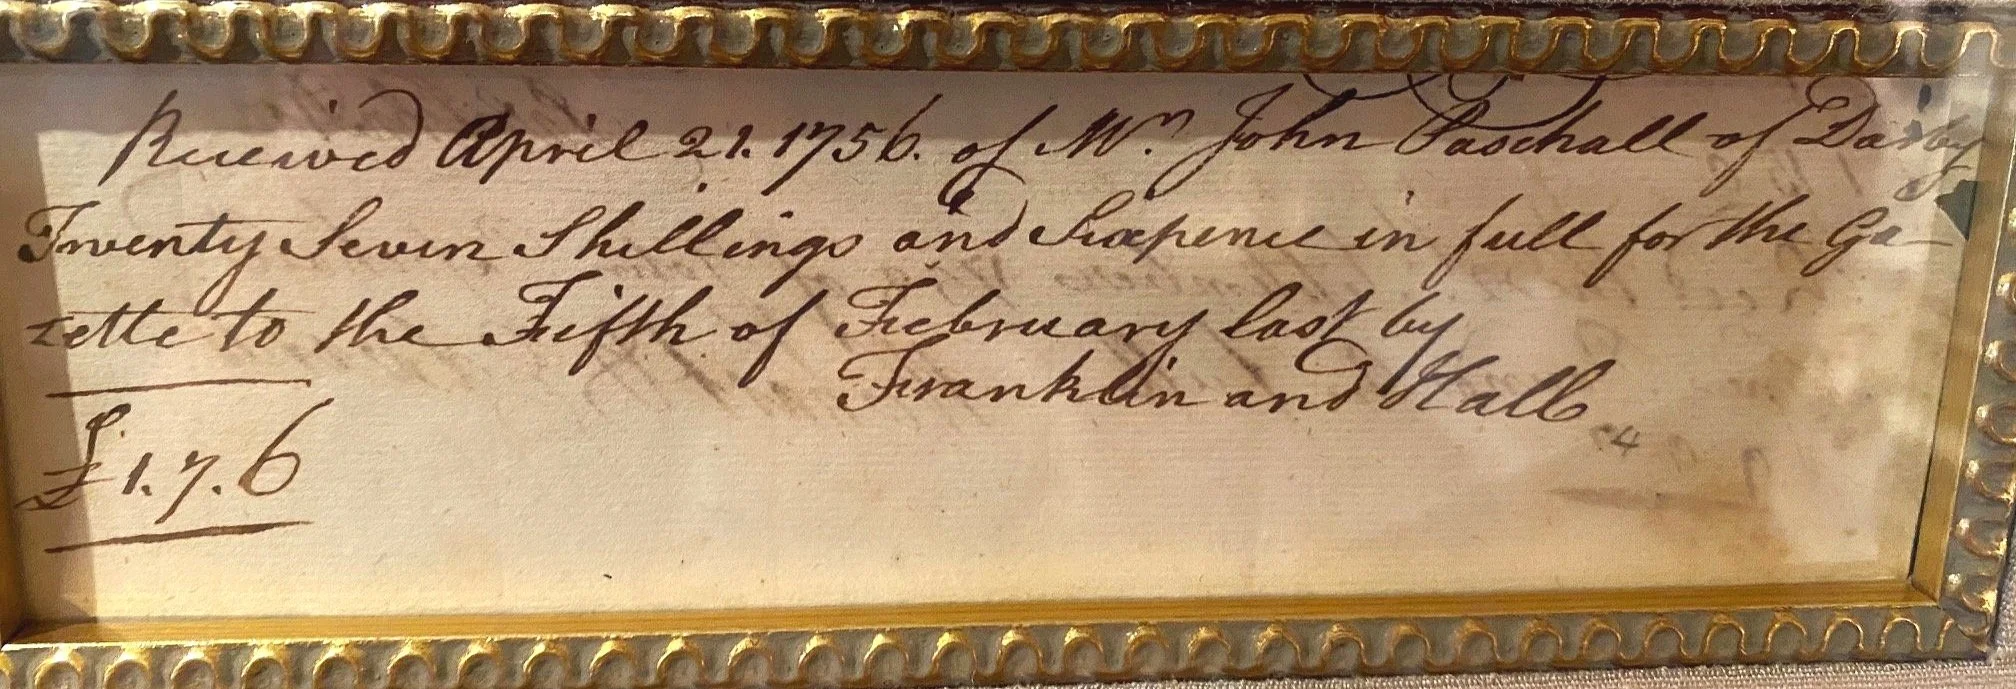 Received April 21. 1756. of Mr. John Paschall of Darby
Twenty Seven Shillings and Sixpence in full for the Ga-
zette to the Fifth of February last by
Franklin and Hall
£ 1. 7. 6
4